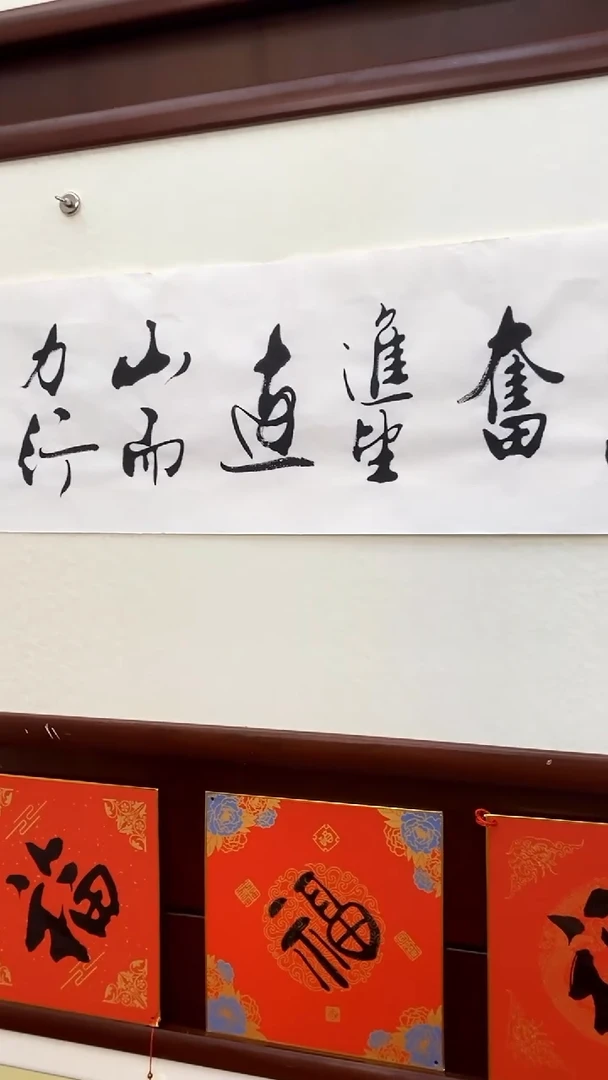 奮
進
山而
力行
福
福